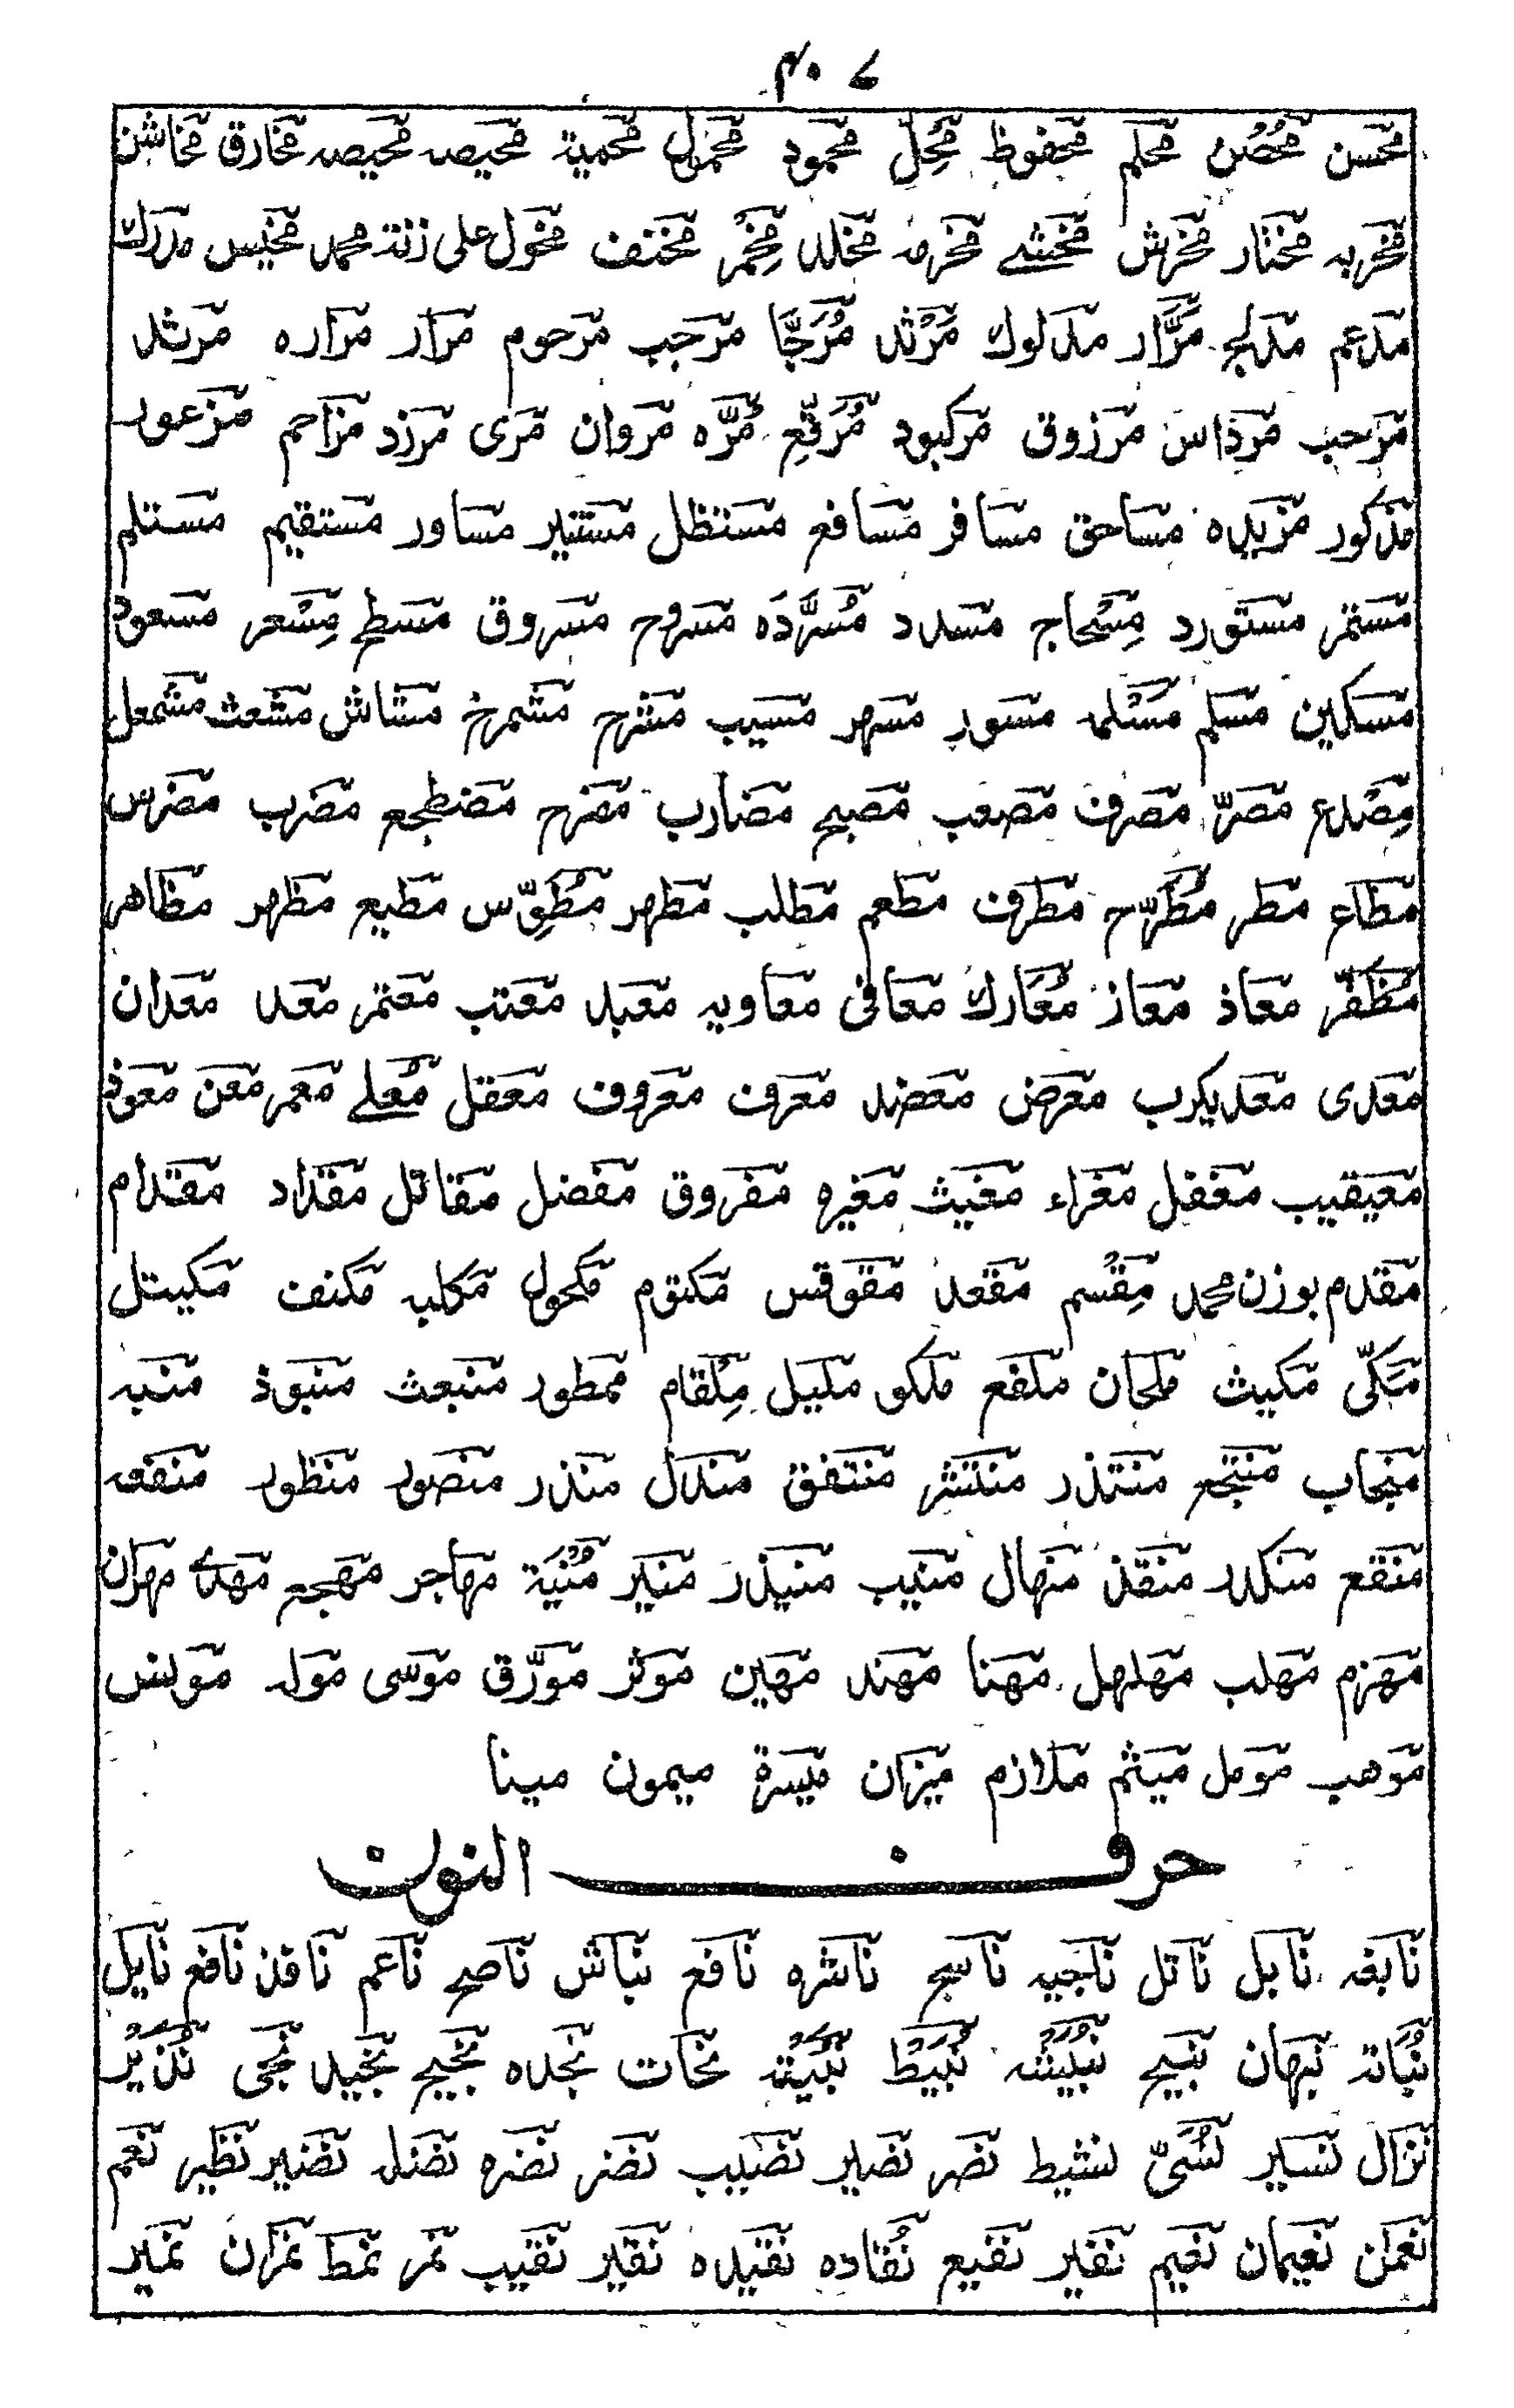 ۴۰۷
محسن مُحْصُن محلم محفوظ مُحِلّ محمود محمول محمية محيصه محيصه مخارق مخاشن
مخربه مختار مخرش مخشے مخرمه مخلد مِخْمَر مخنف مخول على زنة محمد مخيس مدرك
مدعم مدلج مَرَّار مدلوك مَرْثد مُرَجَّا مرحب مرحوم مرار مراره مرثد
مرحب مرداس مرزوق مركبود مُرَقّع مُرّه مروان مرى مرزد مزاحم مزعور
مذكور مزيده مساحق مسافر مسافع مستظل مستنير مساور مستقيم مستلم
مستمر مستورد مِسْحاج مسدد مُسَرَّدَه مسروح مسروق مسطح مِسْعر مسعود
مسكين مسلم مَسْلمه مسور مسهر مسيب مشرح مشمرخ مشاش مشعث مشمعل
مِصْدع مصرّ مصرف مصعب مصبح مضارب مضرح مضطجع مضرب مضرس
مطاع مطر مُطَرّح مطرف مطعم مطلب مطهر مُطَوِّس مطيع مظهر مظاهر
مُظَفّر معاذ معاز مُعَارك معافى معاويه معبد معتب معتمر معد معدان
معدى معديكرب معرض معضد معرف معروف معقل مُعْلے معمر معن معوذ
معيقيب مغفل مغراء مغيث مغيره مفروق مفضل مقاتل مقداد مقدام
مقدم بوزن محمد مِقْسم مقعد مقوقس مكتوم مكحول مكلبه مكنف مكيتل
مَكّى مكيث ملحان ملفع ملكو مليل مِلْقام ممطور منبعث منبوذ منبه
منجاب منتجع منتذر منتشر منتفق مندال منذر منصور منظور منفعه
منقع منكدر منقذ منهال منيب منيذر منير مُنْيَة مهاجر مهجع مهدے مهران
مهزم مهلب مهلهل مهنا مهند مهين موثر مورّق موسى موله مولس
موهب مومل ميثم ملازم ميزان ميسرة ميمون مينا
حرف النون
نابغه نابل ناتل ناجيه ناسج ناشره نافع نباش ناصح ناعم ناقد نافع نايل
نُبَاته نبهان نبيح نُبَيْشه نُبَيْط نُبَيْته نحات نجده نجيح نجيد نجى نُذَيْر
نزال نسير نُسَىّ نشيط نصر نصير نضيب نضر نضره نضله نضير نظير نعم
نعمن نعيمان نعيم نفير نقيع نُقَاده نقيده نقير نقيب نمر نمط نمران نمير